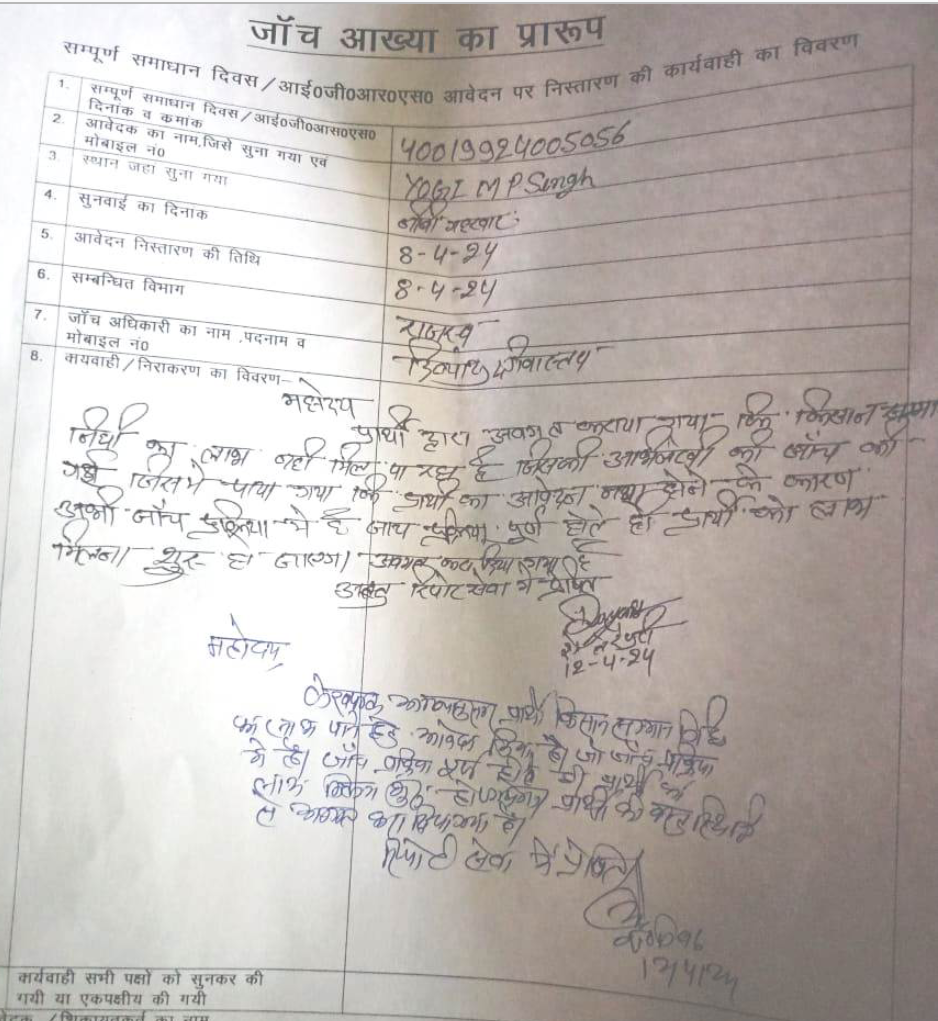 जॉच आख्या का प्रारूप
सम्पूर्ण समाधान दिवस/आई0जी0आर0एस0 आवेदन पर निस्तारण की कार्यवाही का विवरण
1. सम्पूर्ण समाधान दिवस/आई0जी0आस0एस0
दिनांक व कमांक
40019924005056
2. आवेदक का नाम,जिसे सुना गया एवं
मोबाइल नं0
YOGI M P Singh
3. स्थान जहा सुना गया
4. सुनवाई का दिनांक
8-4-24
5. आवेदन निस्तारण की तिथि
8-4-24
6. सम्बन्धित विभाग
राजस्व
7. जॉच अधिकारी का नाम ,पदनाम व
मोबाइल नं0
दिव्यांशु श्रीवास्तव
8. कायवाही/निराकरण का विवरण–
महोदय
प्रार्थी द्वारा अवगत कराया गया कि किसान
निधी का लाभ नही मिल पा रहा है जिसकी की जॉच की
गई जिसमे पाया गया कि प्रार्थी का आवेदन नया होने के कारण
अभी जॉच प्रक्रिया मे है जाच प्रक्रिया पूर्ण होते ही प्रार्थी को लाभ
मिलना शुरू हो जाएगा अवगत करा दिया गया है
रिपोर्ट सेवा मे प्रेषित
12-4-24
महोदय
प्रार्थी किसान सम्मान निधि
का लाभ पाने हेतु आवेदन किया है। जो जॉच प्रक्रिया
मे है। जॉच प्रक्रिया पूर्ण होते ही प्रार्थी को
लाभ मिलना शुरू प्रार्थी को वस्तु स्थिति
से अवगत करा दिया गया है।
रिपोर्ट सेवा मे प्रेषित
कार्यवाही सभी पक्षों को सुनकर की
गयी या एकपक्षीय की गयी